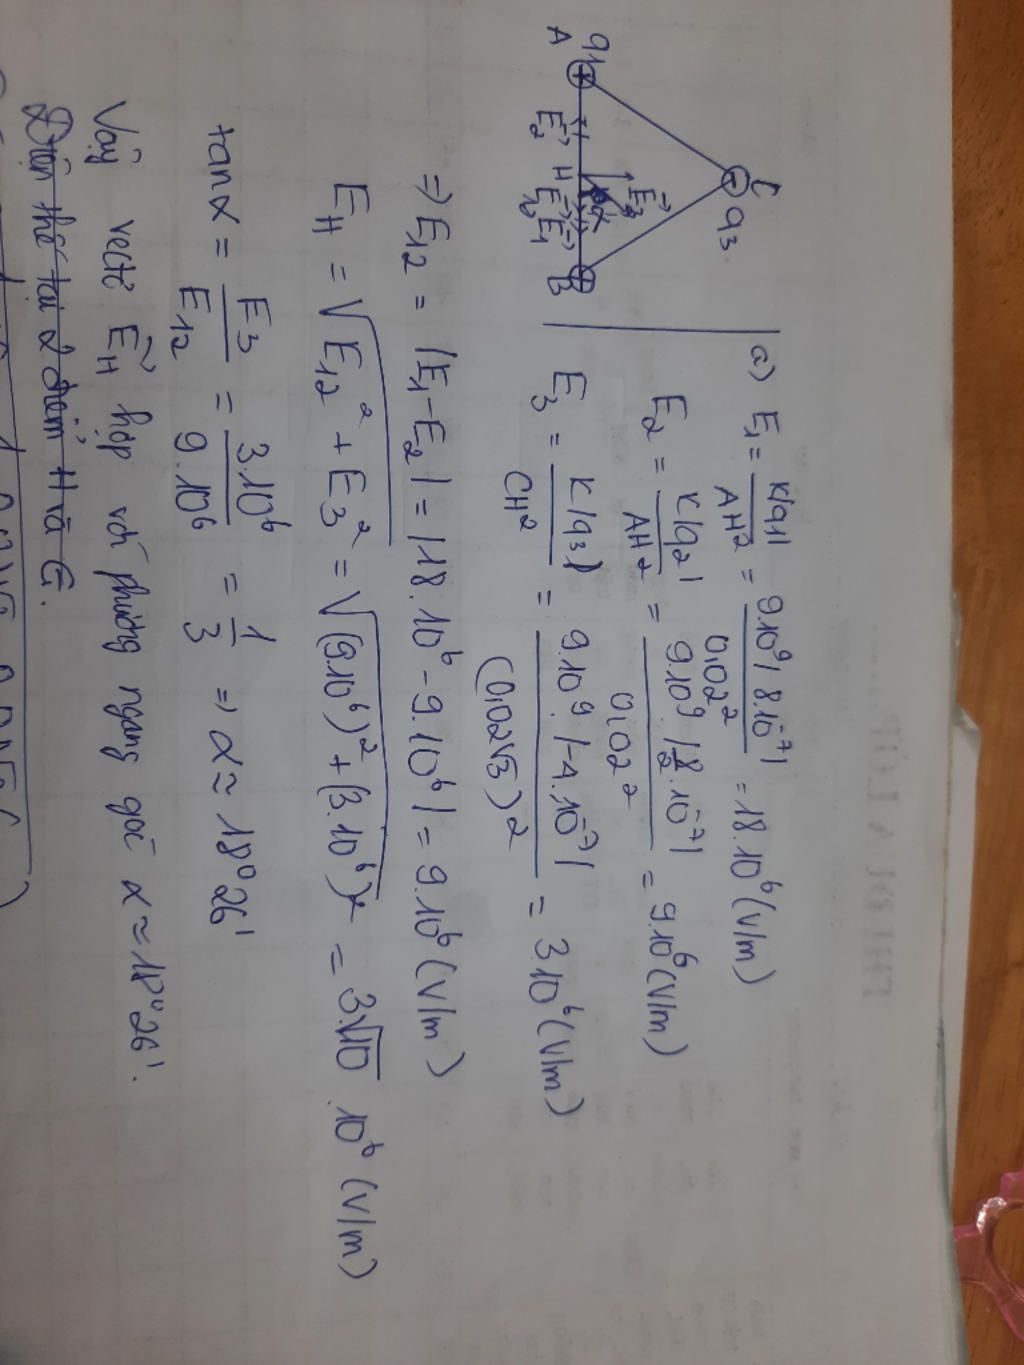 C
q3.
q1
A
E2 H E12 E1
E3
α
B
a) E1 = K|q1| / AH² = 9.10⁹ |8.10⁻⁷| / 0,02² = 18.10⁶ (V/m)
E2 = K|q2| / AH² = 9.10⁹ . | .10⁻⁷| / 0,02² = 9.10⁶ (V/m)
E3 = K|q3| / CH² = 9.10⁹ . |-4.10⁻⁷| / (0,02√3)² = 3.10⁶ (V/m)
=> E12 = |E1 - E2| = |18.10⁶ - 9.10⁶| = 9.10⁶ (V/m)
EH = √(E12² + E3²) = √((9.10⁶)² + (3.10⁶)²) = 3√10 .10⁶ (V/m)
tanα = E3 / E12 = 3.10⁶ / 9.10⁶ = 1/3 => α ≈ 18°26'
Vậy vectơ EH hợp với phương ngang góc α ≈ 18°26'.
Điện thế tại 2 điểm H và C.